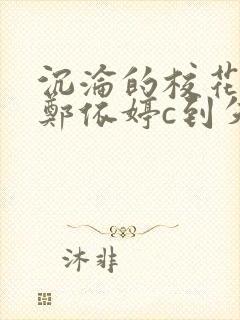 沉沦的校花
郑依婷c到欠
沐非